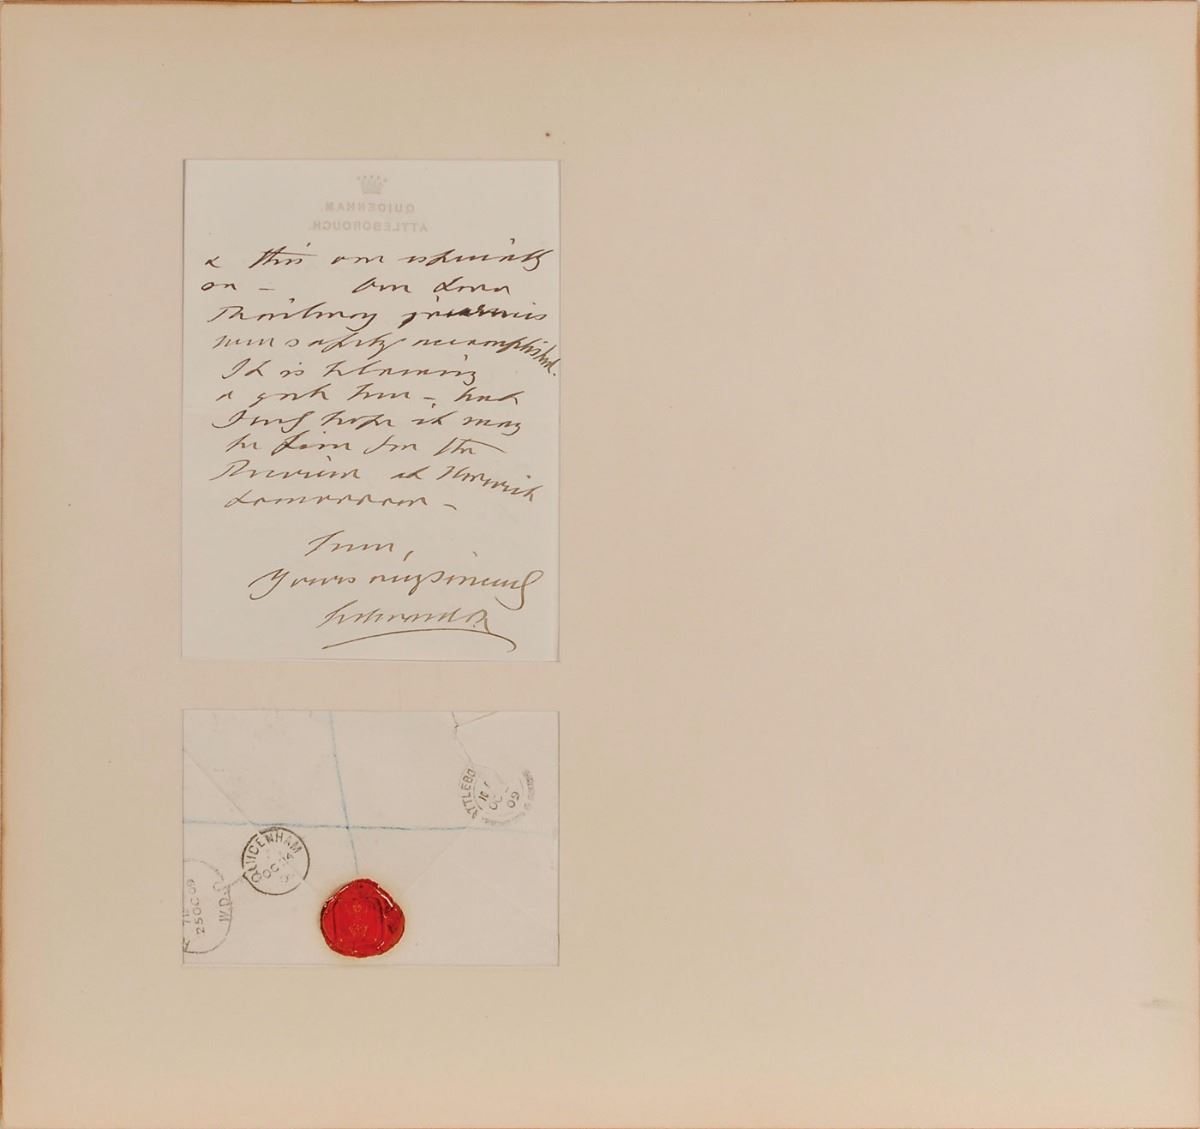 QUIDENHAM
ATTLEBOROUGH.
& this one especially
so – Our two
Railway journeys
were safely accomplished.
It is blowing
a gale here – but
I only hope it may
be fine for the
Review at Norwich
tomorrow –
Yours sincerely
Edward R.
ATTLEBO
OC
09
QUIDENHAM
OC 14
25 OC 09
W.D.O